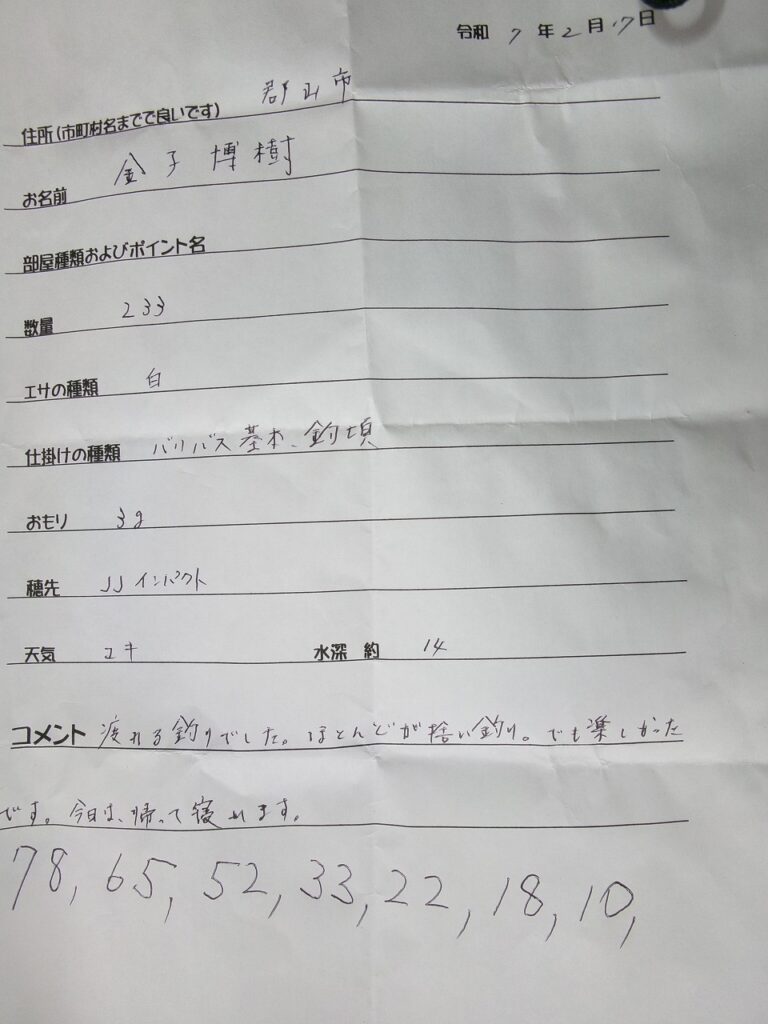 令和 7 年 2 月 17 日
住所(市町村名までで良いです) 郡山市
お名前 金子博樹
部屋種類およびポイント名
数量 233
エサの種類 白
仕掛けの種類 バリバス基本、釣頃
おもり 3g
穂先 JJインパクト
天気 ユキ 水深 約 14
コメント 疲れる釣りでした。ほとんどが拾い釣り。でも楽しかった
です。今日は、帰って寝れます。
78, 65, 52, 33, 22, 18, 10,